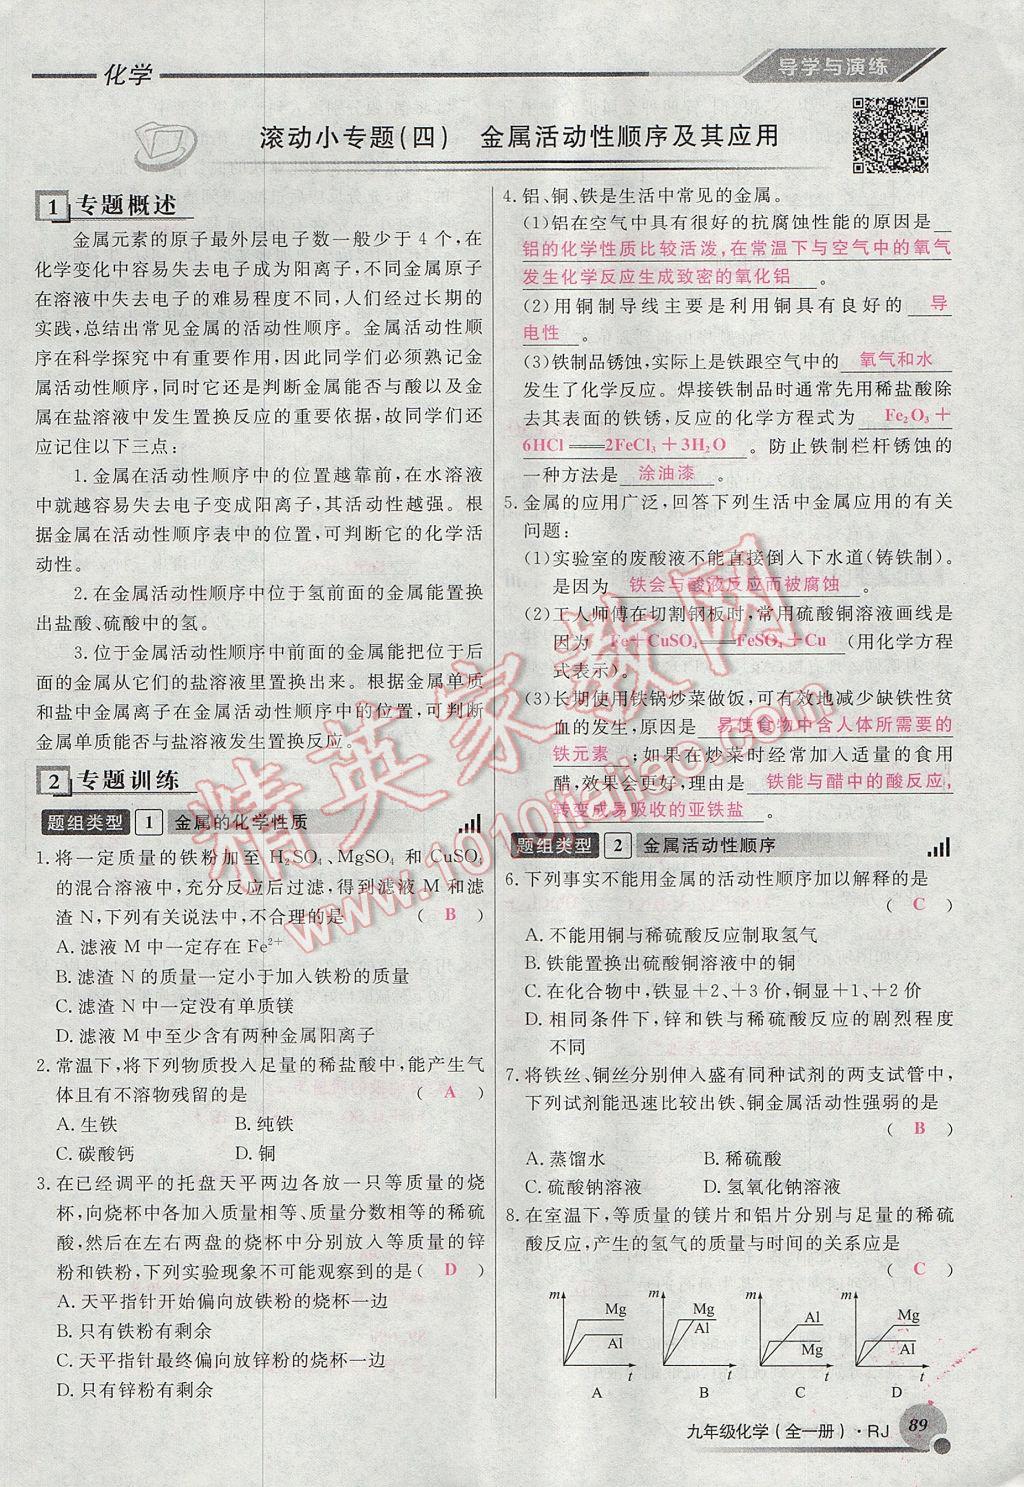 化学
导学与演练
滚动小专题(四) 金属活动性顺序及其应用
1 专题概述
金属元素的原子最外层电子数一般少于 4 个,在
化学变化中容易失去电子成为阳离子,不同金属原子
在溶液中失去电子的难易程度不同,人们经过长期的
实践,总结出常见金属的活动性顺序。金属活动性顺
序在科学探究中有重要作用,因此同学们必须熟记金
属活动性顺序,同时它还是判断金属能否与酸以及金
属在盐溶液中发生置换反应的重要依据,故同学们还
应记住以下三点:
1. 金属在活动性顺序中的位置越靠前,在水溶液
中就越容易失去电子变成阳离子,其活动性越强。根
据金属在活动性顺序表中的位置,可判断它的化学活
动性。
2. 在金属活动性顺序中位于氢前面的金属能置换
出盐酸、硫酸中的氢。
3. 位于金属活动性顺序中前面的金属能把位于后
面的金属从它们的盐溶液里置换出来。根据金属单质
和盐中金属离子在金属活动性顺序中的位置,可判断
金属单质能否与盐溶液发生置换反应。
2 专题训练
题组类型 1 金属的化学性质
1. 将一定质量的铁粉加至 H₂SO₄、MgSO₄ 和 CuSO₄
的混合溶液中,充分反应后过滤,得到滤液 M 和滤
渣 N,下列有关说法中,不合理的是 ( B )
A. 滤液 M 中一定存在 Fe²⁺
B. 滤渣 N 的质量一定小于加入铁粉的质量
C. 滤渣 N 中一定没有单质镁
D. 滤液 M 中至少含有两种金属阳离子
2. 常温下,将下列物质投入足量的稀盐酸中,能产生气
体且有不溶物残留的是 ( A )
A. 生铁 B. 纯铁
C. 碳酸钙 D. 铜
3. 在已经调平的托盘天平两边各放一只等质量的烧
杯,向烧杯中各加入质量相等、质量分数相等的稀硫
酸,然后在左右两盘的烧杯中分别放入等质量的锌
粉和铁粉,下列实验现象不可能观察到的是( D )
A. 天平指针开始偏向放铁粉的烧杯一边
B. 只有铁粉有剩余
C. 天平指针最终偏向放锌粉的烧杯一边
D. 只有锌粉有剩余
4. 铝、铜、铁是生活中常见的金属。
(1)铝在空气中具有很好的抗腐蚀性能的原因是
铝的化学性质比较活泼,在常温下与空气中的氧气
发生化学反应生成致密的氧化铝。
(2)用铜制导线主要是利用铜具有良好的 导
电性 。
(3)铁制品锈蚀,实际上是铁跟空气中的 氧气和水
发生了化学反应。焊接铁制品时通常先用稀盐酸除
去其表面的铁锈,反应的化学方程式为 Fe₂O₃＋
6HCl══2FeCl₃＋3H₂O 。防止铁制栏杆锈蚀的
一种方法是 涂油漆 。
5. 金属的应用广泛,回答下列生活中金属应用的有关
问题:
(1)实验室的废酸液不能直接倒入下水道(铸铁制)。
是因为 铁会与酸液反应而被腐蚀 。
(2)工人师傅在切割钢板时,常用硫酸铜溶液画线是
因为 Fe＋CuSO₄══FeSO₄＋Cu (用化学方程
式表示)。
(3)长期使用铁锅炒菜做饭,可有效地减少缺铁性贫
血的发生,原因是 易使食物中含人体所需要的
铁元素 ;如果在炒菜时经常加入适量的食用
醋,效果会更好,理由是 铁能与醋中的酸反应,
转变成易吸收的亚铁盐 。
题组类型 2 金属活动性顺序
6. 下列事实不能用金属的活动性顺序加以解释的是
( C )
A. 不能用铜与稀硫酸反应制取氢气
B. 铁能置换出硫酸铜溶液中的铜
C. 在化合物中,铁显+2、+3 价,铜显+1、+2 价
D. 相同条件下,锌和铁与稀硫酸反应的剧烈程度
不同
7. 将铁丝、铜丝分别伸入盛有同种试剂的两支试管中,
下列试剂能迅速比较出铁、铜金属活动性强弱的是
( B )
A. 蒸馏水 B. 稀硫酸
C. 硫酸钠溶液 D. 氢氧化钠溶液
8. 在室温下,等质量的镁片和铝片分别与足量的稀硫
酸反应,产生的氢气的质量与时间的关系应是
( C )
m Mg Al t A
m Mg Al t B
m Al Mg t C
m Mg Al t D
九年级化学(全一册)·RJ 89
精英家教网
www.1010jiajiao.com